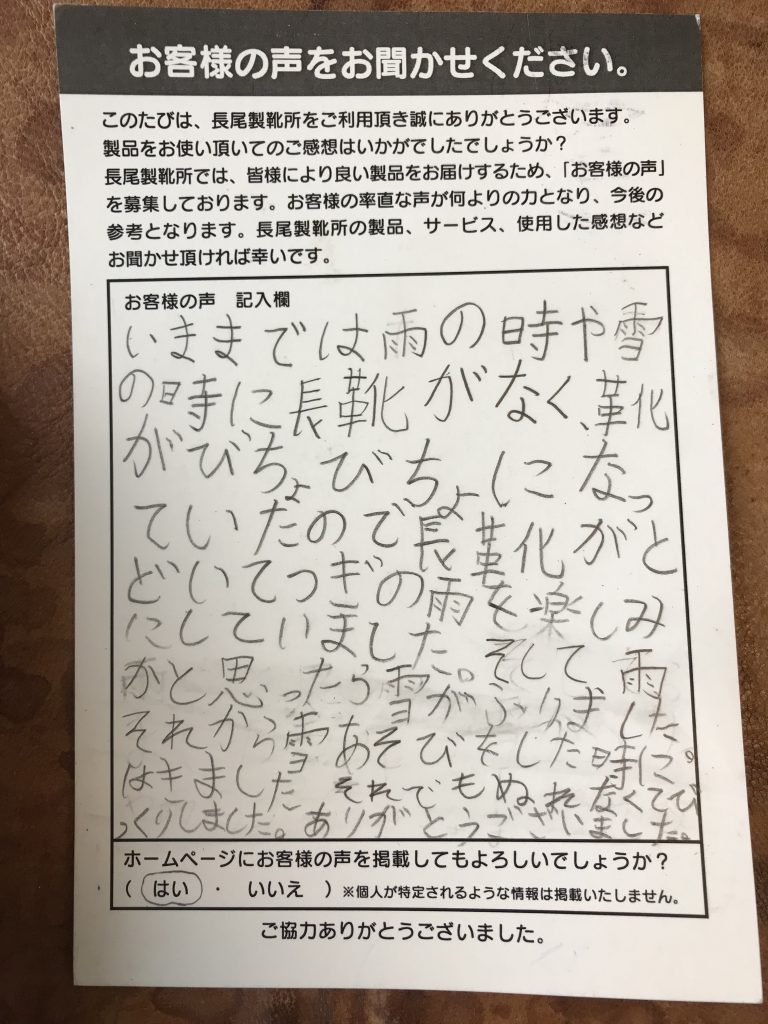 お客様の声をお聞かせください。
このたびは、長尾製靴所をご利用頂き誠にありがとうございます。
製品をお使い頂いてのご感想はいかがでしたでしょうか？
長尾製靴所では、皆様により良い製品をお届けするため、「お客様の声」
を募集しております。お客様の率直な声が何よりの力となり、今後の
参考となります。長尾製靴所の製品、サービス、使用した感想など
お聞かせ頂ければ幸いです。
お客様の声　記入欄
いままでは雨の時や雪
の時に長靴がなく、靴
がびちょびちょになっ
ていたので長靴がと
どいてつぎの雨を楽しみ
にしていました。そして雨
かと思ったら雪がふりました。
それから雪あそびをした時に
はきました。それでもぬれなくてび
っくりしました。ありがとうございました。
ホームページにお客様の声を掲載してもよろしいでしょうか？
（ はい ・ いいえ ）※個人が特定されるような情報は掲載いたしません。
ご協力ありがとうございました。